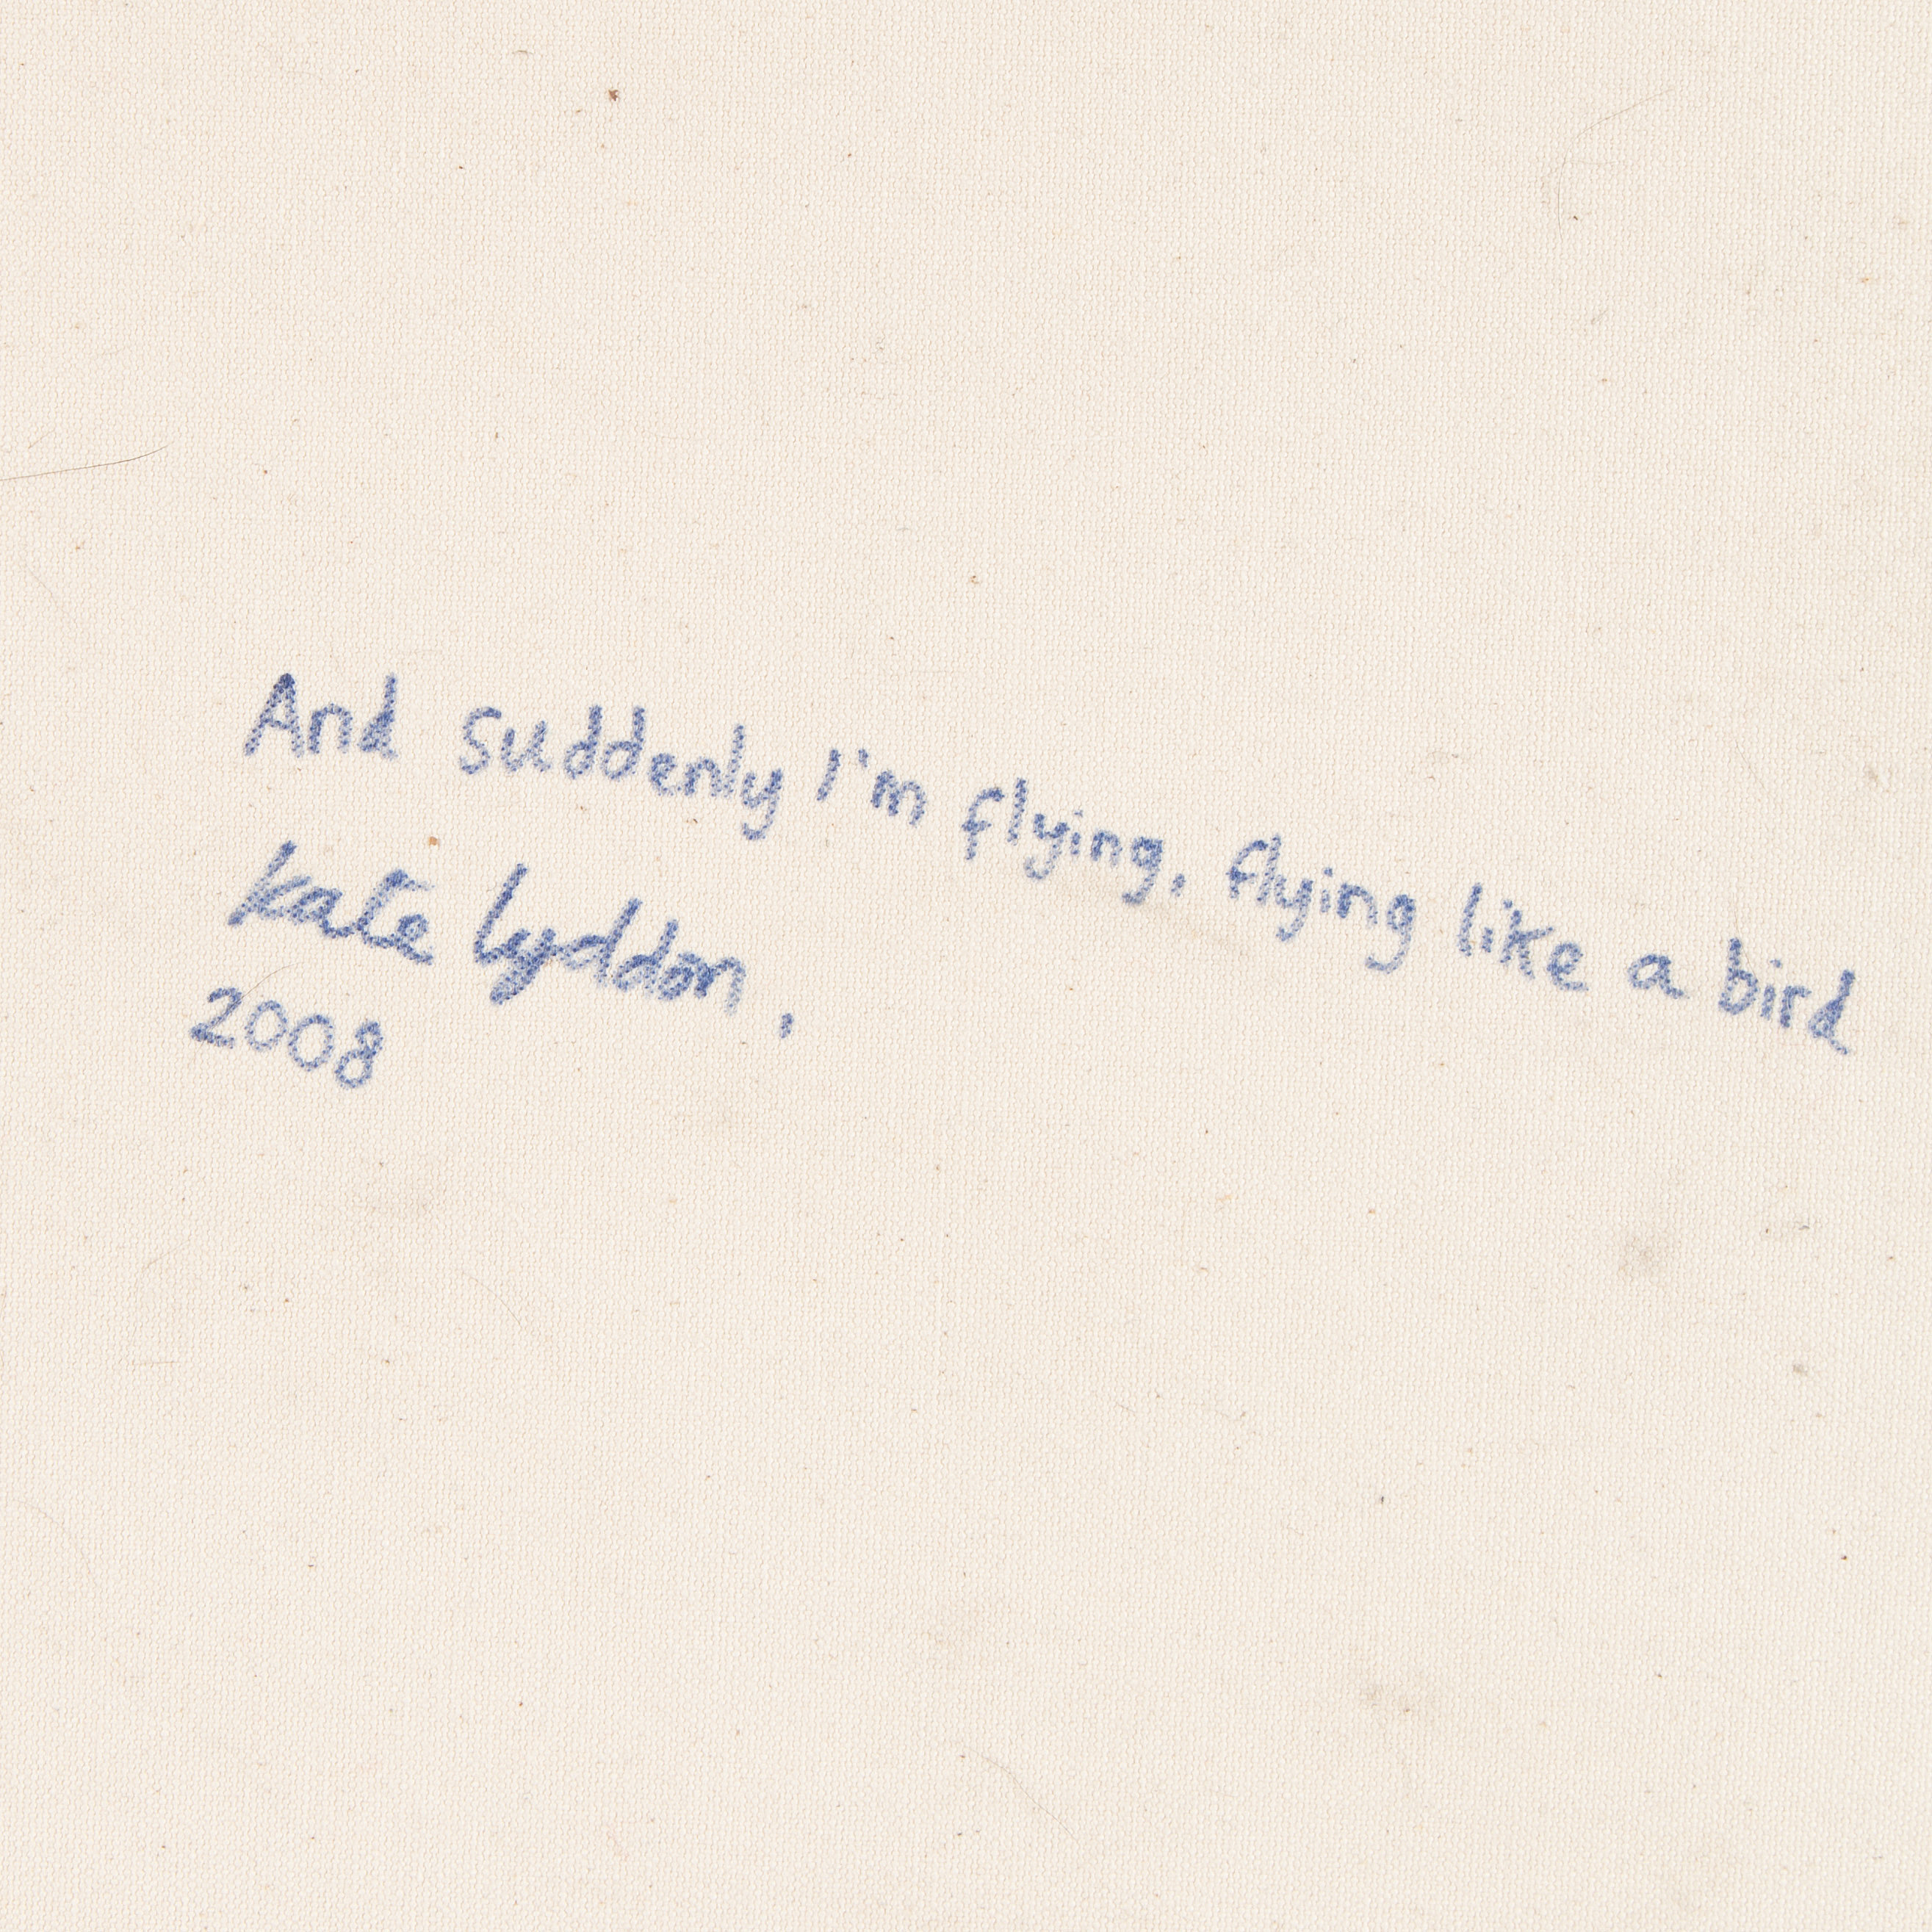 And suddenly I'm flying, flying like a bird
kate lyddon,
2008